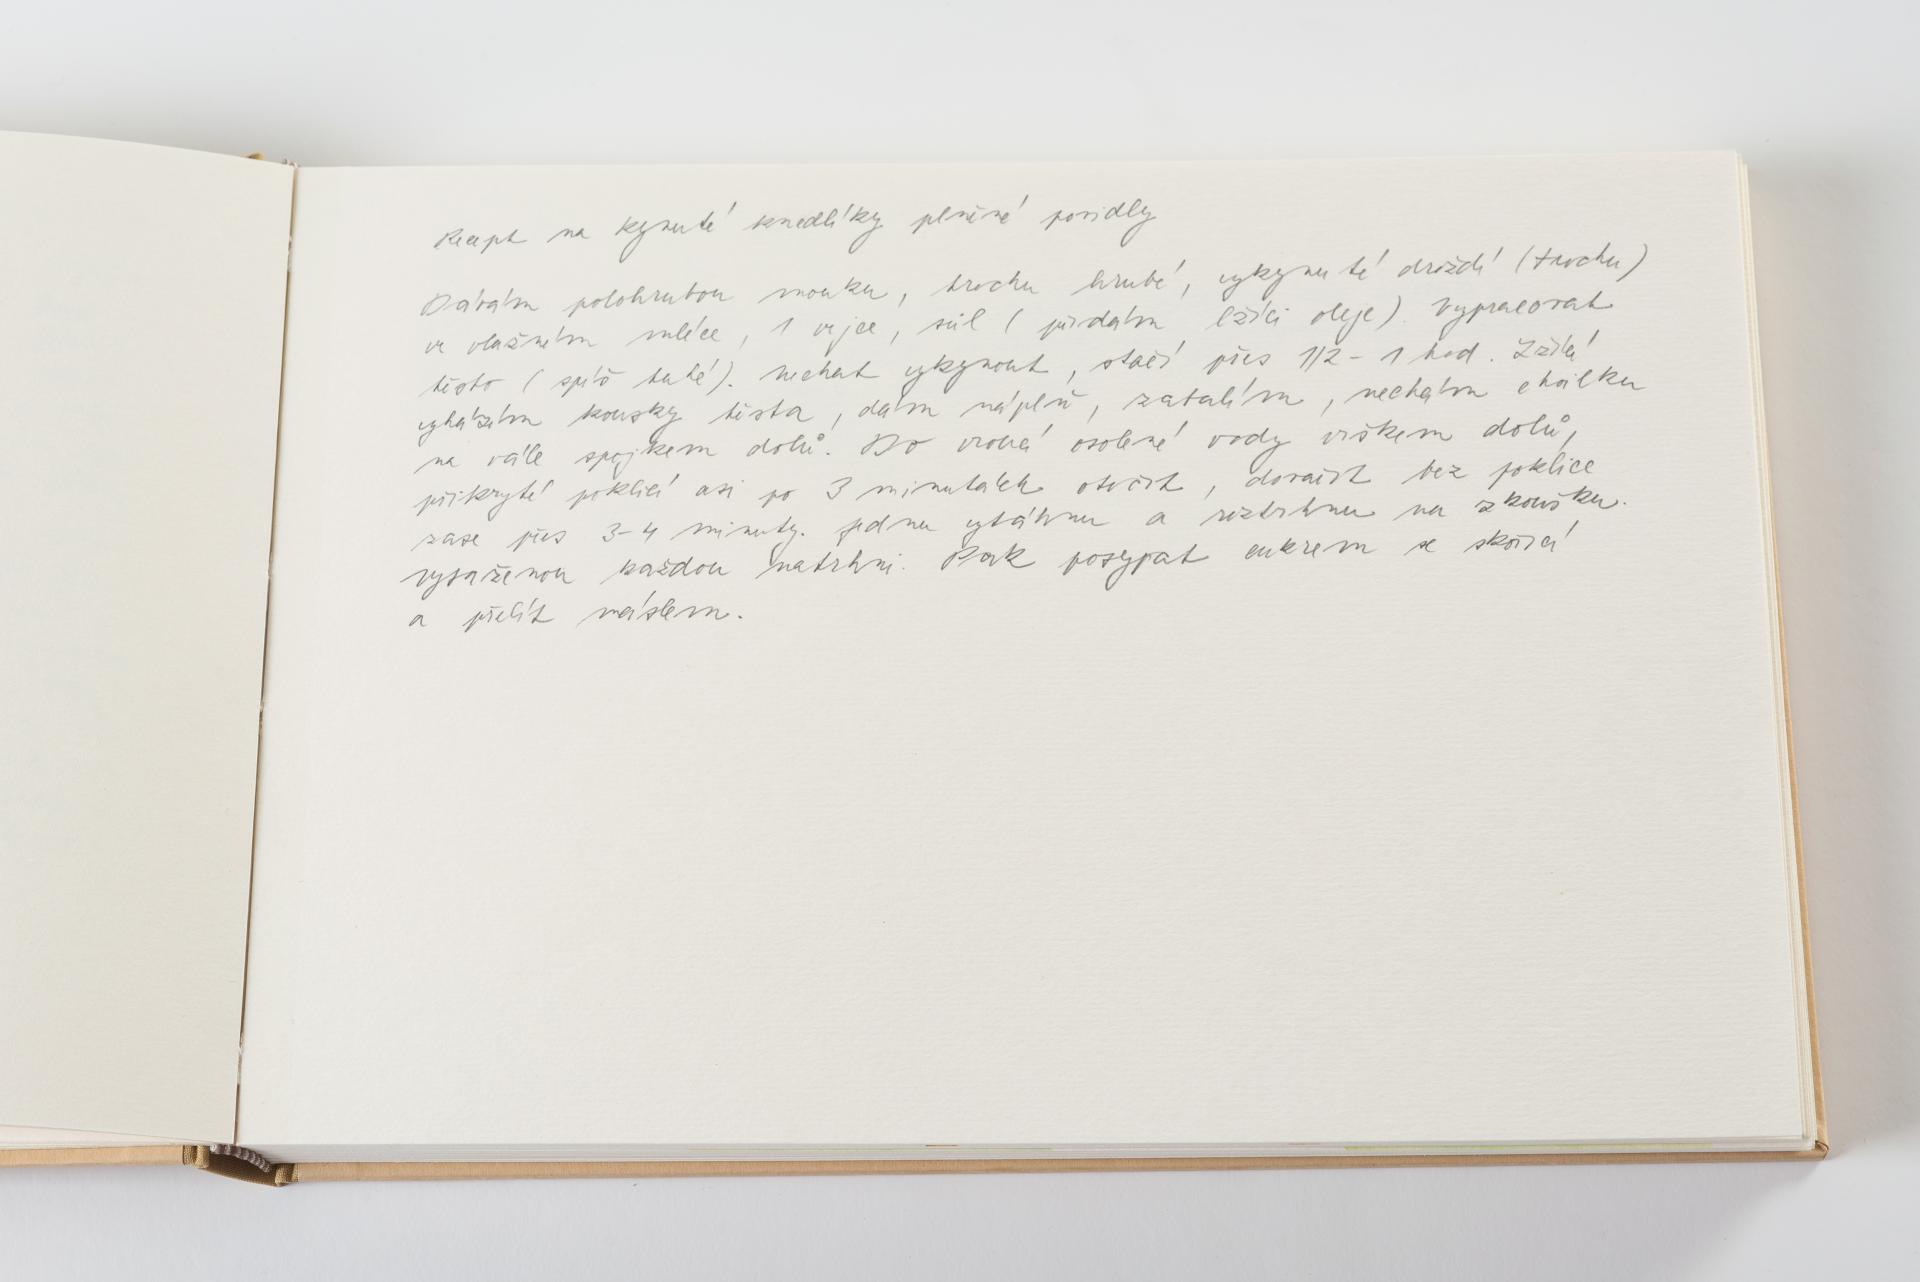 Recept na kynuté knedlíky plněné povidly
Dávám polohrubou mouku, trochu hrubé, vykynuté droždí (trochu)
ve vlažném mléce, 1 vejce, sůl (přidám lžíci oleje). Vypracovat
těsto (spíš tuhé). Nechat vykynout, stačí přes 1/2 - 1 hod. Lžící
vyhážím kousky těsta, dám náplň, zatalím, nechám chvilku
na vále spojkem dolů. Do vroucí osolené vody vrškem dolů,
přikryté poklicí asi po 3 minutách otočit, dovařit bez poklice
zase přes 3-4 minuty. Jednu vytáhnu a roztrhnu na zkoušku.
vytaženou každou natrhni. Pak posypat cukrem se skořicí
a přelít máslem.